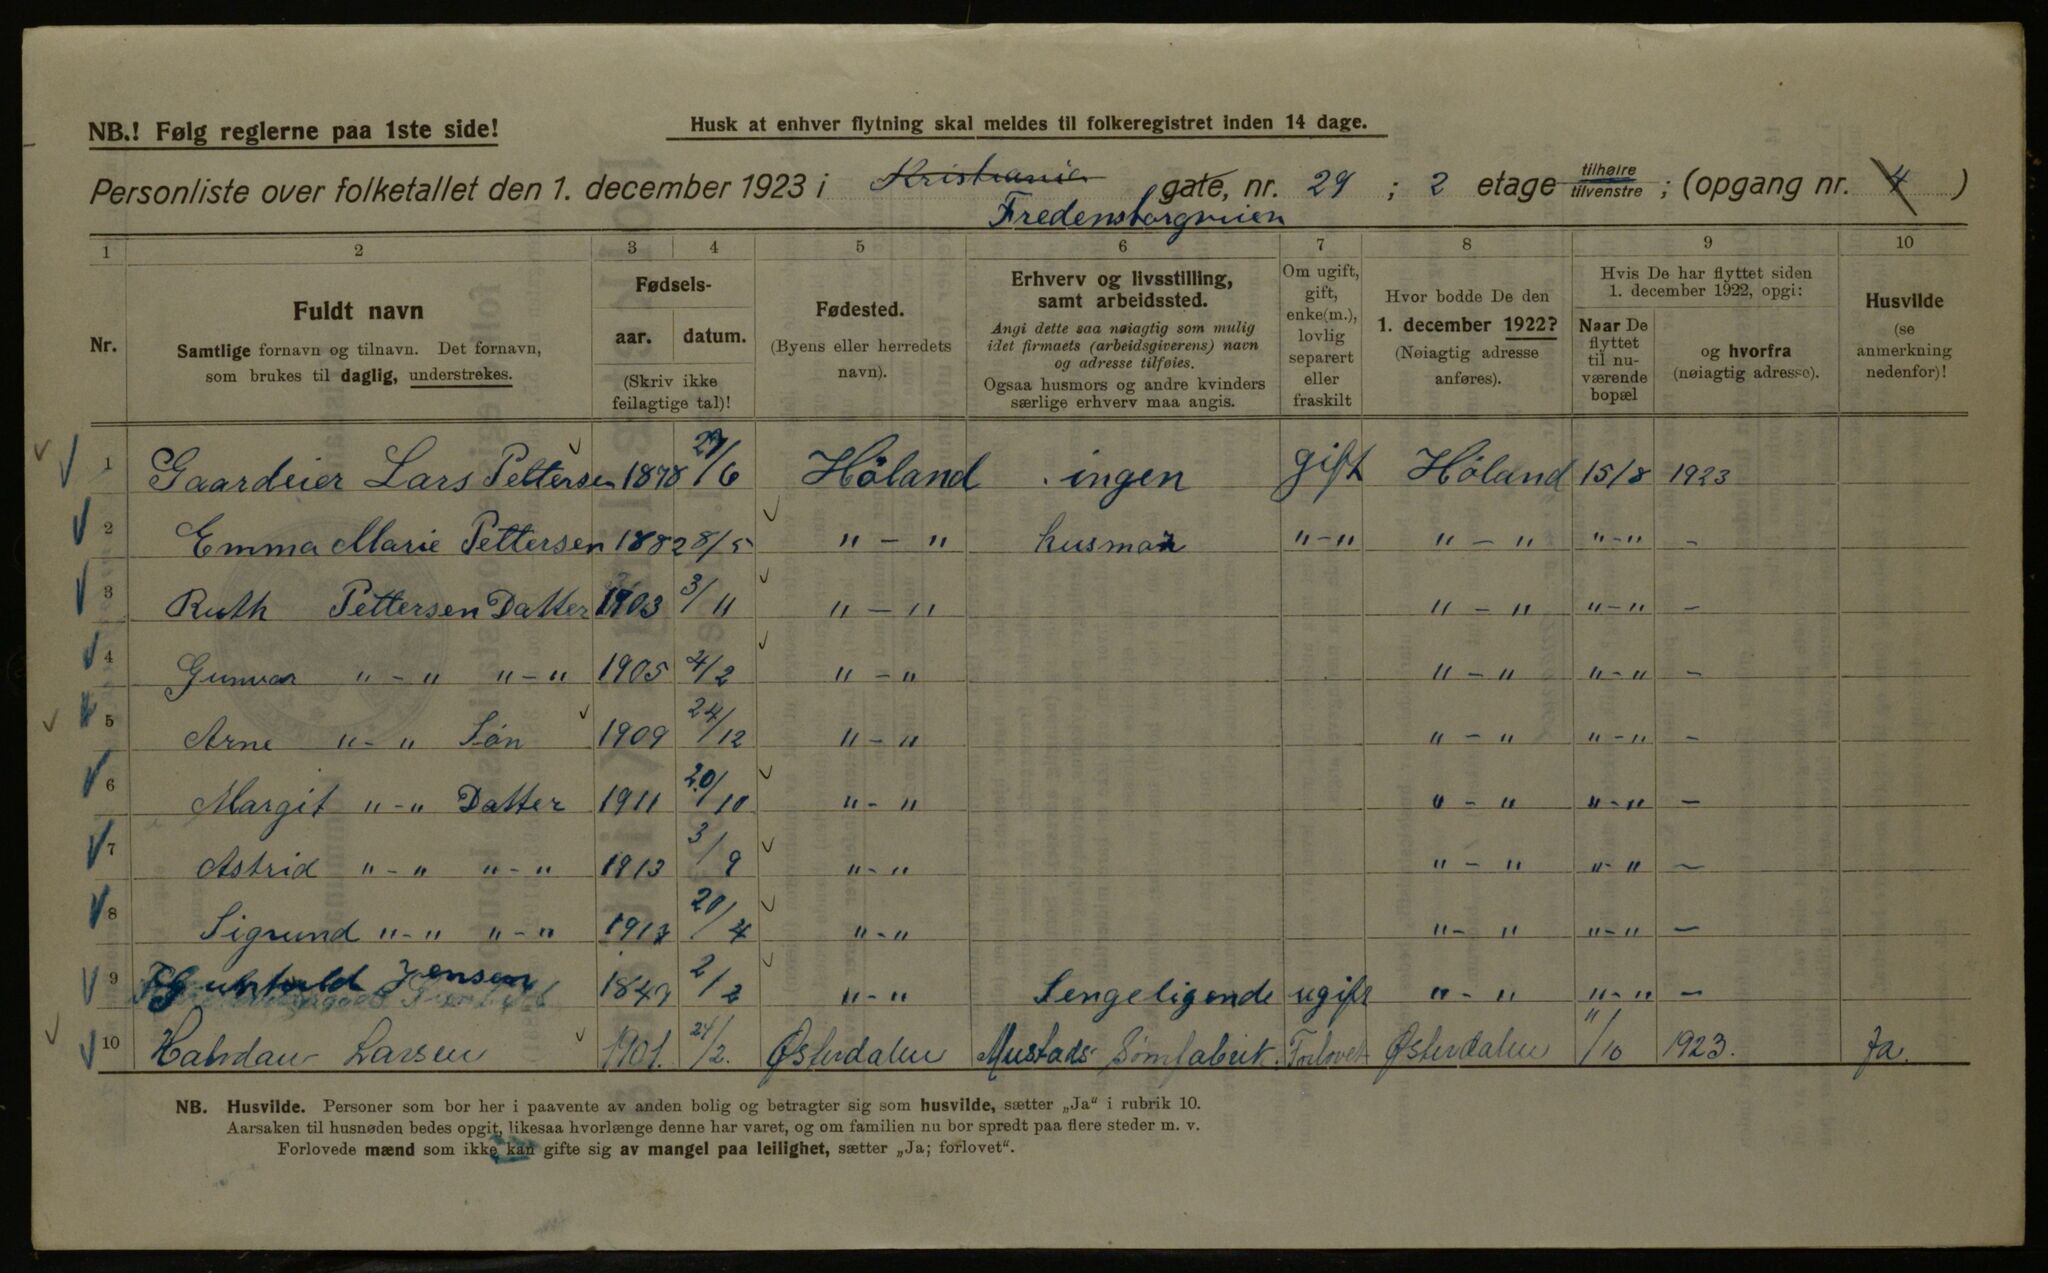 NB.! Følg reglerne paa 1ste side!
Husk at enhver flytning skal meldes til folkeregistret inden 14 dage.
Personliste over folketallet den 1. december 1923 i Kristiania gate, nr. 29 ; 2 etage tilhøire tilvenstre ; (opgang nr. 4 )
Fredensborgveien
1 2 3 4 5 6 7 8 9 10
Nr.
Fuldt navn
Samtlige fornavn og tilnavn. Det fornavn,
som brukes til daglig, understrekes.
Fødsels-
aar. datum.
(Skriv ikke
feilagtige tal)!
Fødested.
(Byens eller herredets
navn).
Erhverv og livsstilling,
samt arbeidssted.
Angi dette saa nøiagtig som mulig
idet firmaets (arbeidsgiverens) navn
og adresse tilføies.
Ogsaa husmors og andre kvinders
særlige erhverv maa angis.
Om ugift,
gift,
enke(m.),
lovlig
separert
eller
fraskilt
Hvor bodde De den
1. december 1922?
(Nøiagtig adresse
anføres).
Hvis De har flyttet siden
1. december 1922, opgi:
Naar De
flyttet
til nu-
værende
bopæl
og hvorfra
(nøiagtig adresse).
Husvilde
(se
anmerkning
nedenfor)!
1 Gaardeier Lars Pettersen 1878 27/6 Høland ingen gift Høland 15/8 1923
2 Emma Marie Pettersen 1882 8/5 " - " husmor " - " " - " " - " -
3 Ruth Pettersen Datter 1903 3/11 " - " " - " " - " -
4 Gunvor " - " " - " 1905 4/2 " - " " - " " - " -
5 Arne " - " Søn 1909 24/12 " - " " - " " - " -
6 Margit " - " Datter 1911 20/10 " - " " - " " - " -
7 Astrid " - " " - " 1913 3/9 " - " " - " " - " -
8 Sigrund " - " " - " 20/4 " - " " - " " - " -
9 Jensen 1847 2/2 " - " Sengeligende ugift " - " " - " -
10 Halvdan Larsen 1901. 24/2. Østerdalen Mustads Sømfabrik. Forlovet Østerdalen 11/10 1923. Ja.
NB. Husvilde. Personer som bor her i paavente av anden bolig og betragter sig som husvilde, sætter „Ja“ i rubrik 10.
Aarsaken til husnøden bedes opgit, likesaa hvorlænge denne har varet, og om familien nu bor spredt paa flere steder m. v.
Forlovede mænd som ikke kan gifte sig av mangel paa leilighet, sætter „Ja; forlovet“.